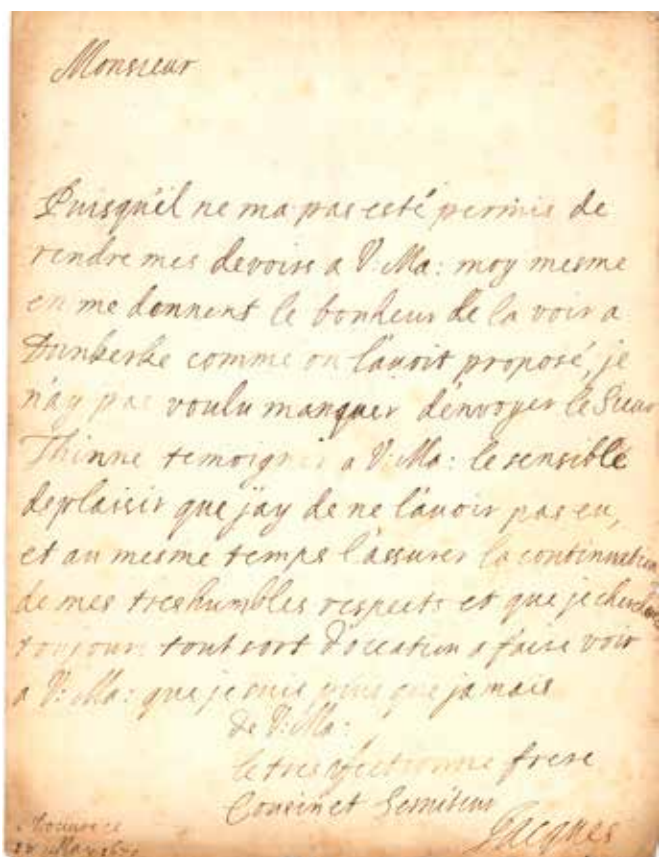 Monsieur
Puisqu'il ne ma pas esté permis de
rendre mes devoirs a V: Ma: moy mesme
en me donnent le bonheur de la voir a
Dunkerke comme on l'avoit proposé, je
n'ay pas voulu manquer d'envoyer le Sieur
Thinne temoigner a V: Ma: le sensible
deplaisir que j'ay de ne l'avoir pas eu,
et au mesme temps l'assurer la continuation
de mes treshumbles respects et que je
toujours tout sort d'occation a faire voir
a V: Ma: que je suis plus que jamais
de V: Ma:
le tres affectionne frere
Cousin et Serviteur
Jacques